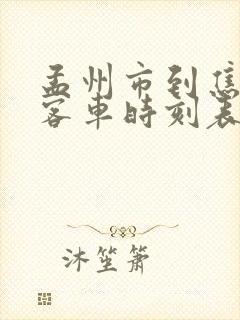 孟州市到焦
客车时刻表
沐笙箫